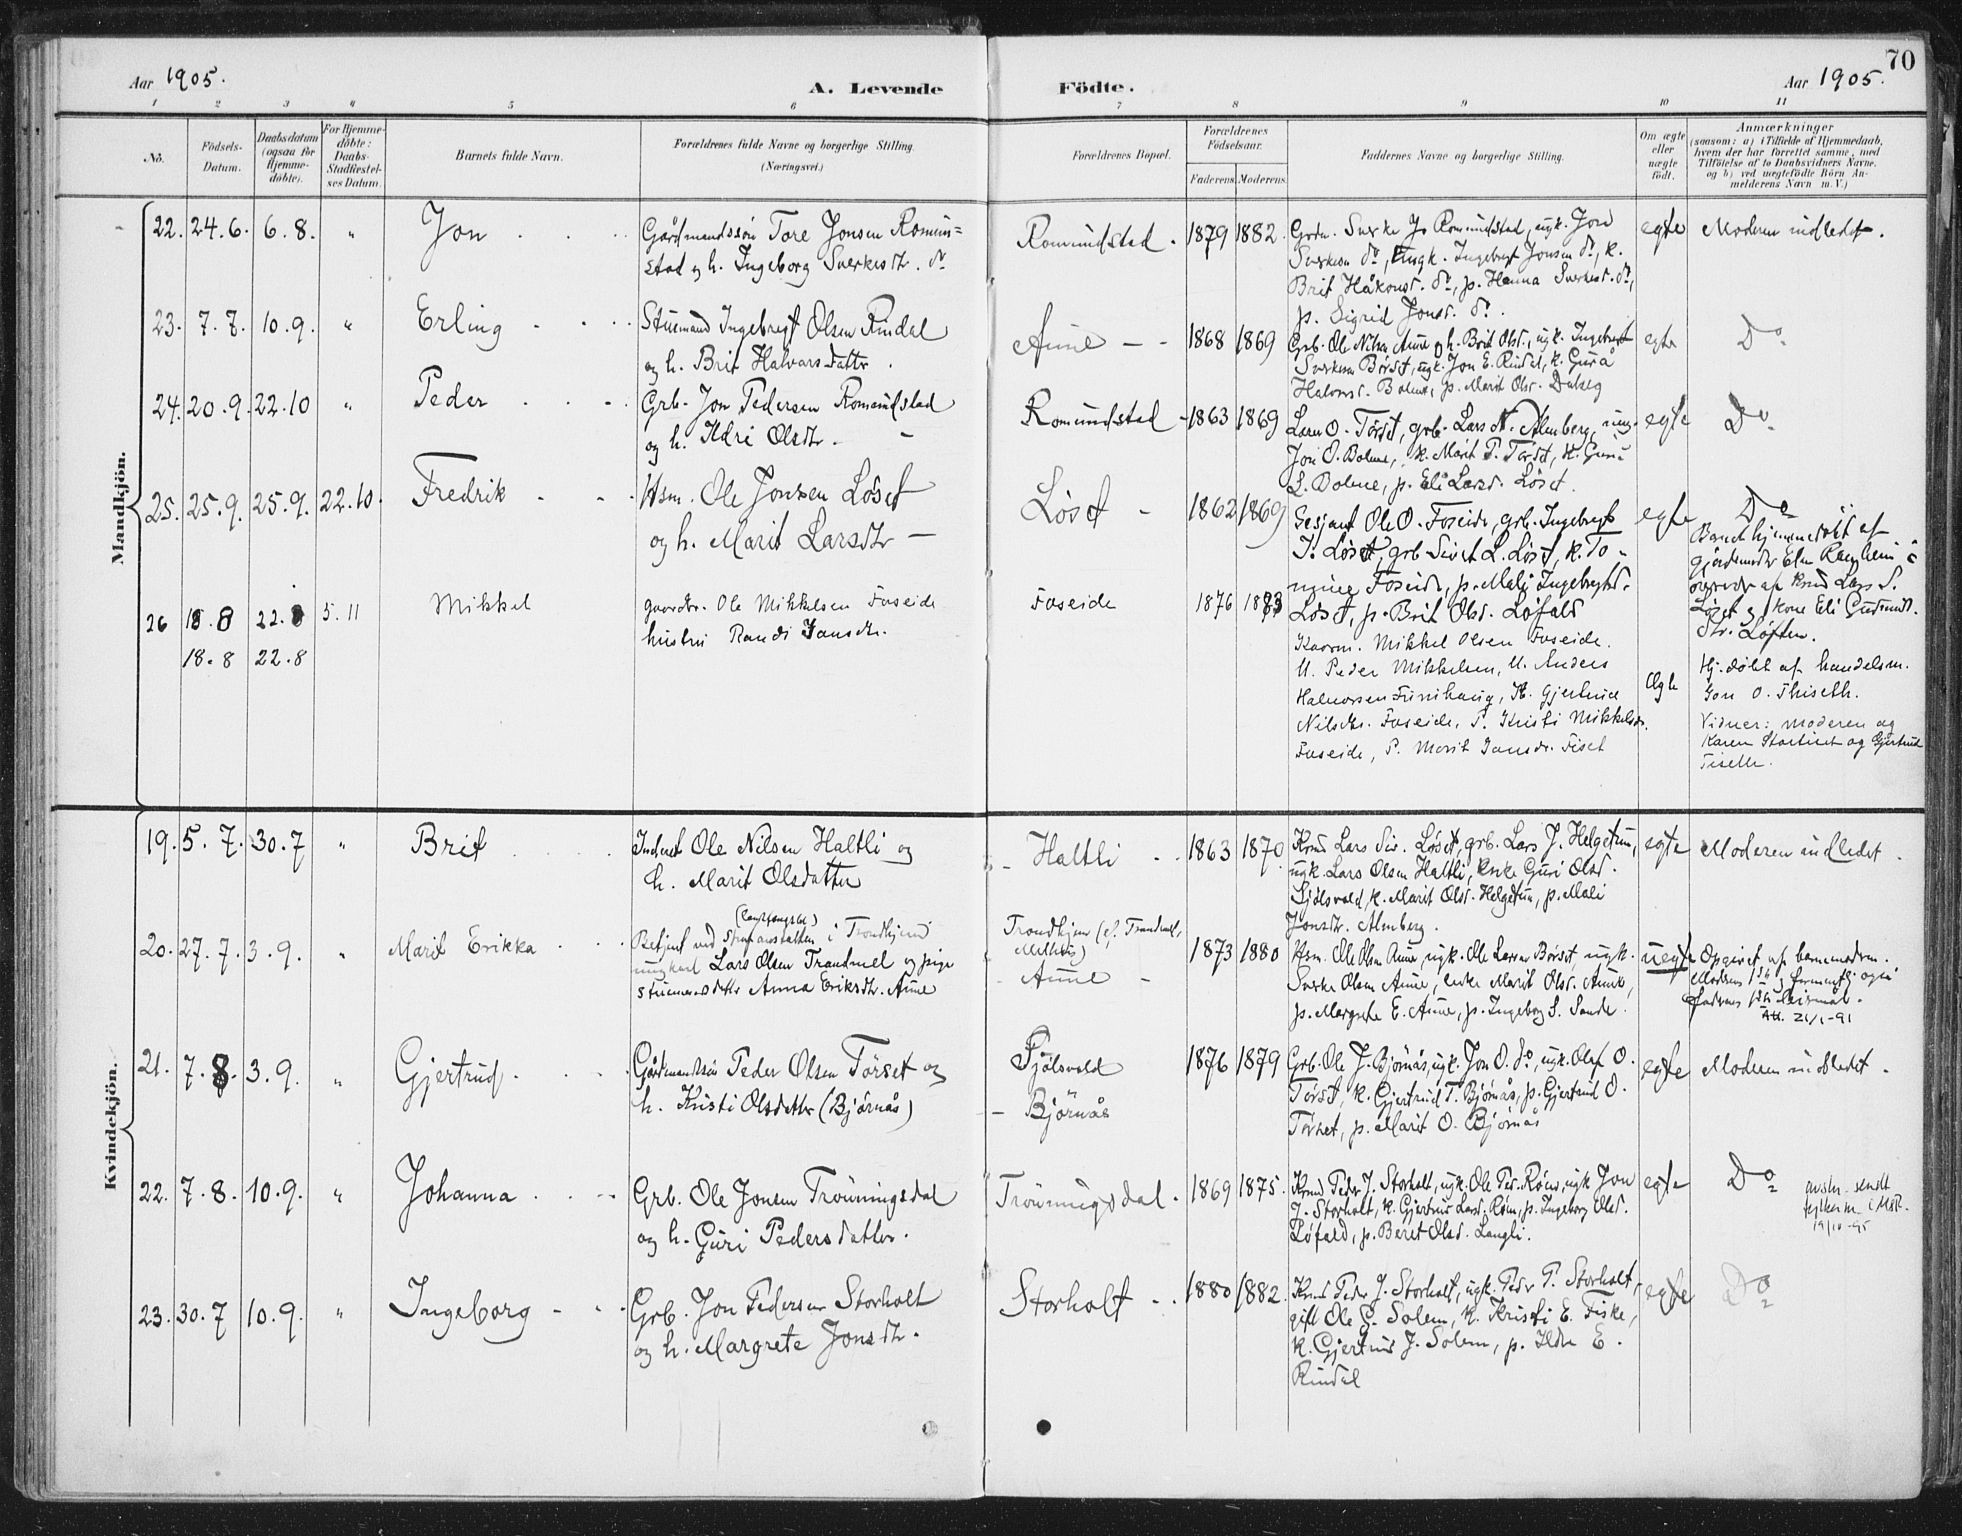 70
Aar 1905.
A. Levende Födte.
Aar 1905.
1 2 3 4 5 6 7 8 9 10 11
No.
Födsels-Datum.
Daabsdatum (ogsaa for Hjemme-döbte).
For Hjemme-döbte: Daabs-Stadfæstel-ses Datum.
Barnets fulde Navn.
Forældrenes fulde Navne og borgerlige Stilling. (Næringsvei.)
Forældrenes Bopæl.
Forældrenes Födselsaar.
Faderens. Moderens.
Faddernes Navne og borgerlige Stilling.
Om ægte eller uægte födt.
Anmærkninger
(saasom: a) i Tilfælde af Hjemmedaab,
hvem der har forrettet samme, med
Tilföielse af to Daabsvidners Navne,
og b) ved uægtefödte Börn An-
melderens Navn m. V.)
Mandkjön.
22. 24.6. 6.8. " Jon
Gårdmandssøn Tore Jonsen Romun=
stad og h. Ingeborg Sverkesdtr. do
Romundstad. 1879 1882.
Grdm. Sverke Jo Romundstad, ugk. Jon
Sverkesen do, ungk. Ingebregt Jonsen do, k.
Brit Håkonsd. do, p. Hanna Sverkesd. do,
p. Sigrid Jonsd. do.
egte Moderen indledet.
23. 7.7. 10.9. " Erling
Stuemand Ingebregt Olsen Rindal
og h. Brit Halvorsdatter.
Aune 1868 1869
Grb. Ole Nilsen Aune og h. Brit Olsd., ugk. Ingebregt
Sverkesen Børset, ugk. Jon E. Rindal, k. Gurå
Halvorsd. Bolme, p. Marit Olsd. Dalseg
egte Do.
24. 20.9. 22.10 " Peder
Grb. Jon Pedersen Romundstad
og h. Ildri Olsdtr.
Romundstad 1863 1869
Lars O. Tørset, grb. Lars N. Almberg, ung.
Jon O. Bolme, k. Marit P. Tørset, k. Guru
L. Bolme, p. Eli Larsd. Löset
egte Do.
25. 25.9. 25.9. 22.10. Fredrik
Hsm. Ole Jonsen Löset
og h. Marit Larsdtr
Löset 1862 1869
Sersjant Ole O. Foseide, grb. Ingebregt
T. Løset, grb Sivet L. Löset, k. To-
Foseide, p. Mali Ingebregtsd.
Løset, p. Brit Olsd. Løfald
egte Do
Barnet hjemmedøbt af
gjordemoder Elen Ramheim i
overvær af Kmd Lars S.
Løset og kone Eli Gudmunds-
dtr. Løften.
26 18.8 22.8 5.11 Mikkel
18.8 22.8
gaardbr. Ole Mikkelsen Foseide
hustru Randi Jonsdtr.
Foseide 1876 1883
Kaarm. Mikkel Olsen Foseide.
U. Peder Mikkelsen, U. Anders
Halvorsen Furuhaug, K. Gjertrud
Nilsdtr. Foseide, P. Kristi Mikkelsdr.
Foseide, P. Marit Jonsdr. Fiset
Ægte
Hj. døbt af handelsm.
Jon O. Thiseth.
Vidner: moderen og
Karen Stortiset og Gjertrud
Tiseth.
Kvindekjön.
19. 5.7. 30.7 " Brit
Inderst Ole Nilsen Haltli og
h. Marit Olsdatter
Haltli 1863 1870
Kmd Lars Siv. Løset, grb. Lars J. Helgetun,
ugk. Lars Olsen Haltli, Enke Guri Olsd.
Sjölsvold, k. Marit Olsd. Helgetun, p. Mali
Jonsdtr. Almberg.
egte Moderen indledet.
20. 27.7. 3.9. " Marit Erikka
(landsfængslet)
Betjent ved Strafanstalten i Trondhjem
ungkarl Lars Olsen Trandmel og pige
stuemandsdatter Anna Eriksdtr. Aune
Trondhjem (ef. Trandmel,
Meldal)
Aune 1873 1880
Hsm. Ole Olsen Aune, ugk. Ole Larsen Børset, ugk.
Sverke Olsen Aune, enke Marit Olsd. Aune,
p. Margrete E. Aune, p. Ingeborg S. Sande.
uegte Opgivet af barnemoderen.
Moderens 1ste og formentlig også
faderens 1ste leiermål.
Att. 21/1-91
21. 7.8. 3.9. " Gjertrud
Gårdmandssøn Peder Olsen Tørset og
h. Kristi Olsdatter (Bjørnås)
Sjölsvold
Bjørnås 1876 1879
Grb. Ole J. Bjørnås, ugk. Jon O. do, ugk. Oluf O.
Tørset, k. Gjertrud T. Bjørnås, p. Gjertrud O.
Tørset, p. Marit O. Bjørnås
egte Moderen indledet.
22. 7.8. 10.9. " Johanna
Grb. Ole Jonsen Trönningsdal
og h. Guri Pedersdatter.
Trönningsdal. 1869 1875.
Kmd Peder J. Storholt, ugk. Ole Ped. Røen, ugk Jon
J. Storholt, k. Gjertrud Larsd. Røen, p. Ingeborg Olsd.
Løfald, p. Beret Olsd. Langli.
egte Do
19/10-95
23. 30.7 10.9. " Ingeborg
Grb. Jon Pedersen Storholt
og h. Margrete Jonsdtr.
Storholt 1880 1882.
Kmd Peder J. Storholt, ugk. Peder P. Storholt,
gift Ole G. Solem, k. Kristi E. Fiske,
k. Gjertrud J. Solem, p. Ildri E.
Rindal
egte Do